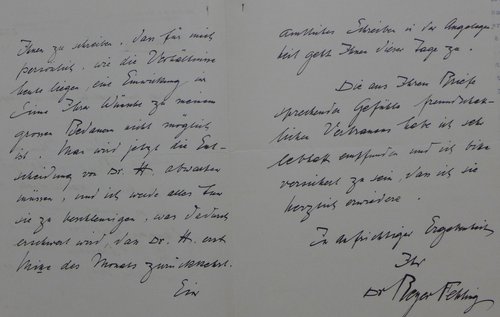 Ihnen zu schreiben, dass für mich
persönlich, wie die Verhältnisse
heute liegen, eine Einwirkung im
Sinne Ihrer Wünsche zu meinem
grossen Bedauern nicht möglich
ist. Man wird jetzt die Ent-
scheidung von Dr. H. abwarten
müssen, und ich werde alles tun
sie zu beschleunigen, was dadurch
erschwert wird, dass Dr. H. erst
Mitte des Monats zurückkehrt.
Ein
amtliches Schreiben in der Angelegen-
heit geht Ihnen dieser Tage zu.
Die aus Ihrem Briefe
sprechenden Gefühle freundschaft-
lichen Vertrauens habe ich sehr
lebhaft empfunden und ich bitte
versichert zu sein, dass ich sie
herzlich erwidere.
In aufrichtiger Ergebenheit
Ihr
Dr Beyer Fehling